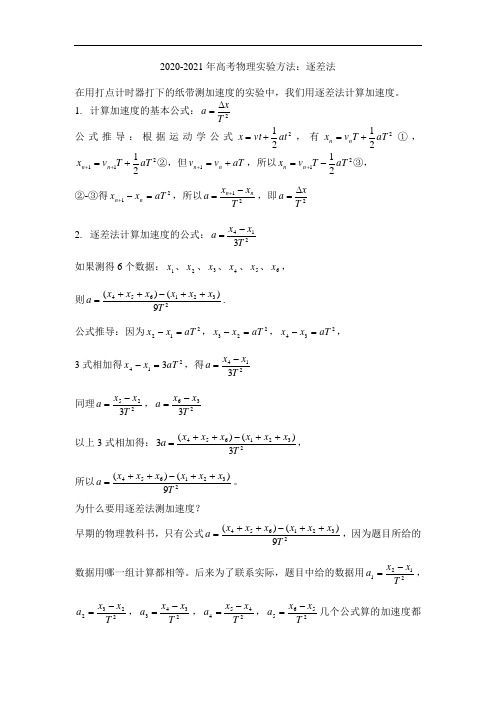 2020-2021年高考物理实验方法：逐差法
在用打点计时器打下的纸带测加速度的实验中，我们用逐差法计算加速度。
1. 计算加速度的基本公式：a = Δx/T²
公式推导：根据运动学公式 x = vt + 1/2 at²，有 xₙ = vₙT + 1/2 aT² ①，
xₙ₊₁ = vₙ₊₁T + 1/2 aT² ②，但 vₙ₊₁ = vₙ + aT，所以 xₙ = vₙ₊₁T − 1/2 aT² ③，
②-③得 xₙ₊₁ − xₙ = aT²，所以 a = (xₙ₊₁ − xₙ)/T²，即 a = Δx/T²
2. 逐差法计算加速度的公式：a = (x₄ − x₁)/3T²
如果测得6个数据：x₁、x₂、x₃、x₄、x₅、x₆，
则 a = ((x₄ + x₅ + x₆) − (x₁ + x₂ + x₃))/9T².
公式推导：因为 x₂ − x₁ = aT²，x₃ − x₂ = aT²，x₄ − x₃ = aT²，
3式相加得 x₄ − x₁ = 3aT²，得 a = (x₄ − x₁)/3T²
同理 a = (x₅ − x₂)/3T²，a = (x₆ − x₃)/3T²
以上3式相加得：3a = ((x₄ + x₅ + x₆) − (x₁ + x₂ + x₃))/3T²，
所以 a = ((x₄ + x₅ + x₆) − (x₁ + x₂ + x₃))/9T²。
为什么要用逐差法测加速度？
早期的物理教科书，只有公式 a = ((x₄ + x₅ + x₆) − (x₁ + x₂ + x₃))/9T²，因为题目所给的
数据用哪一组计算都相等。后来为了联系实际，题目中给的数据用 a₁ = (x₂ − x₁)/T²，
a₂ = (x₃ − x₂)/T²，a₃ = (x₄ − x₃)/T²，a₄ = (x₅ − x₄)/T²，a₅ = (x₆ − x₅)/T² 几个公式算的加速度都